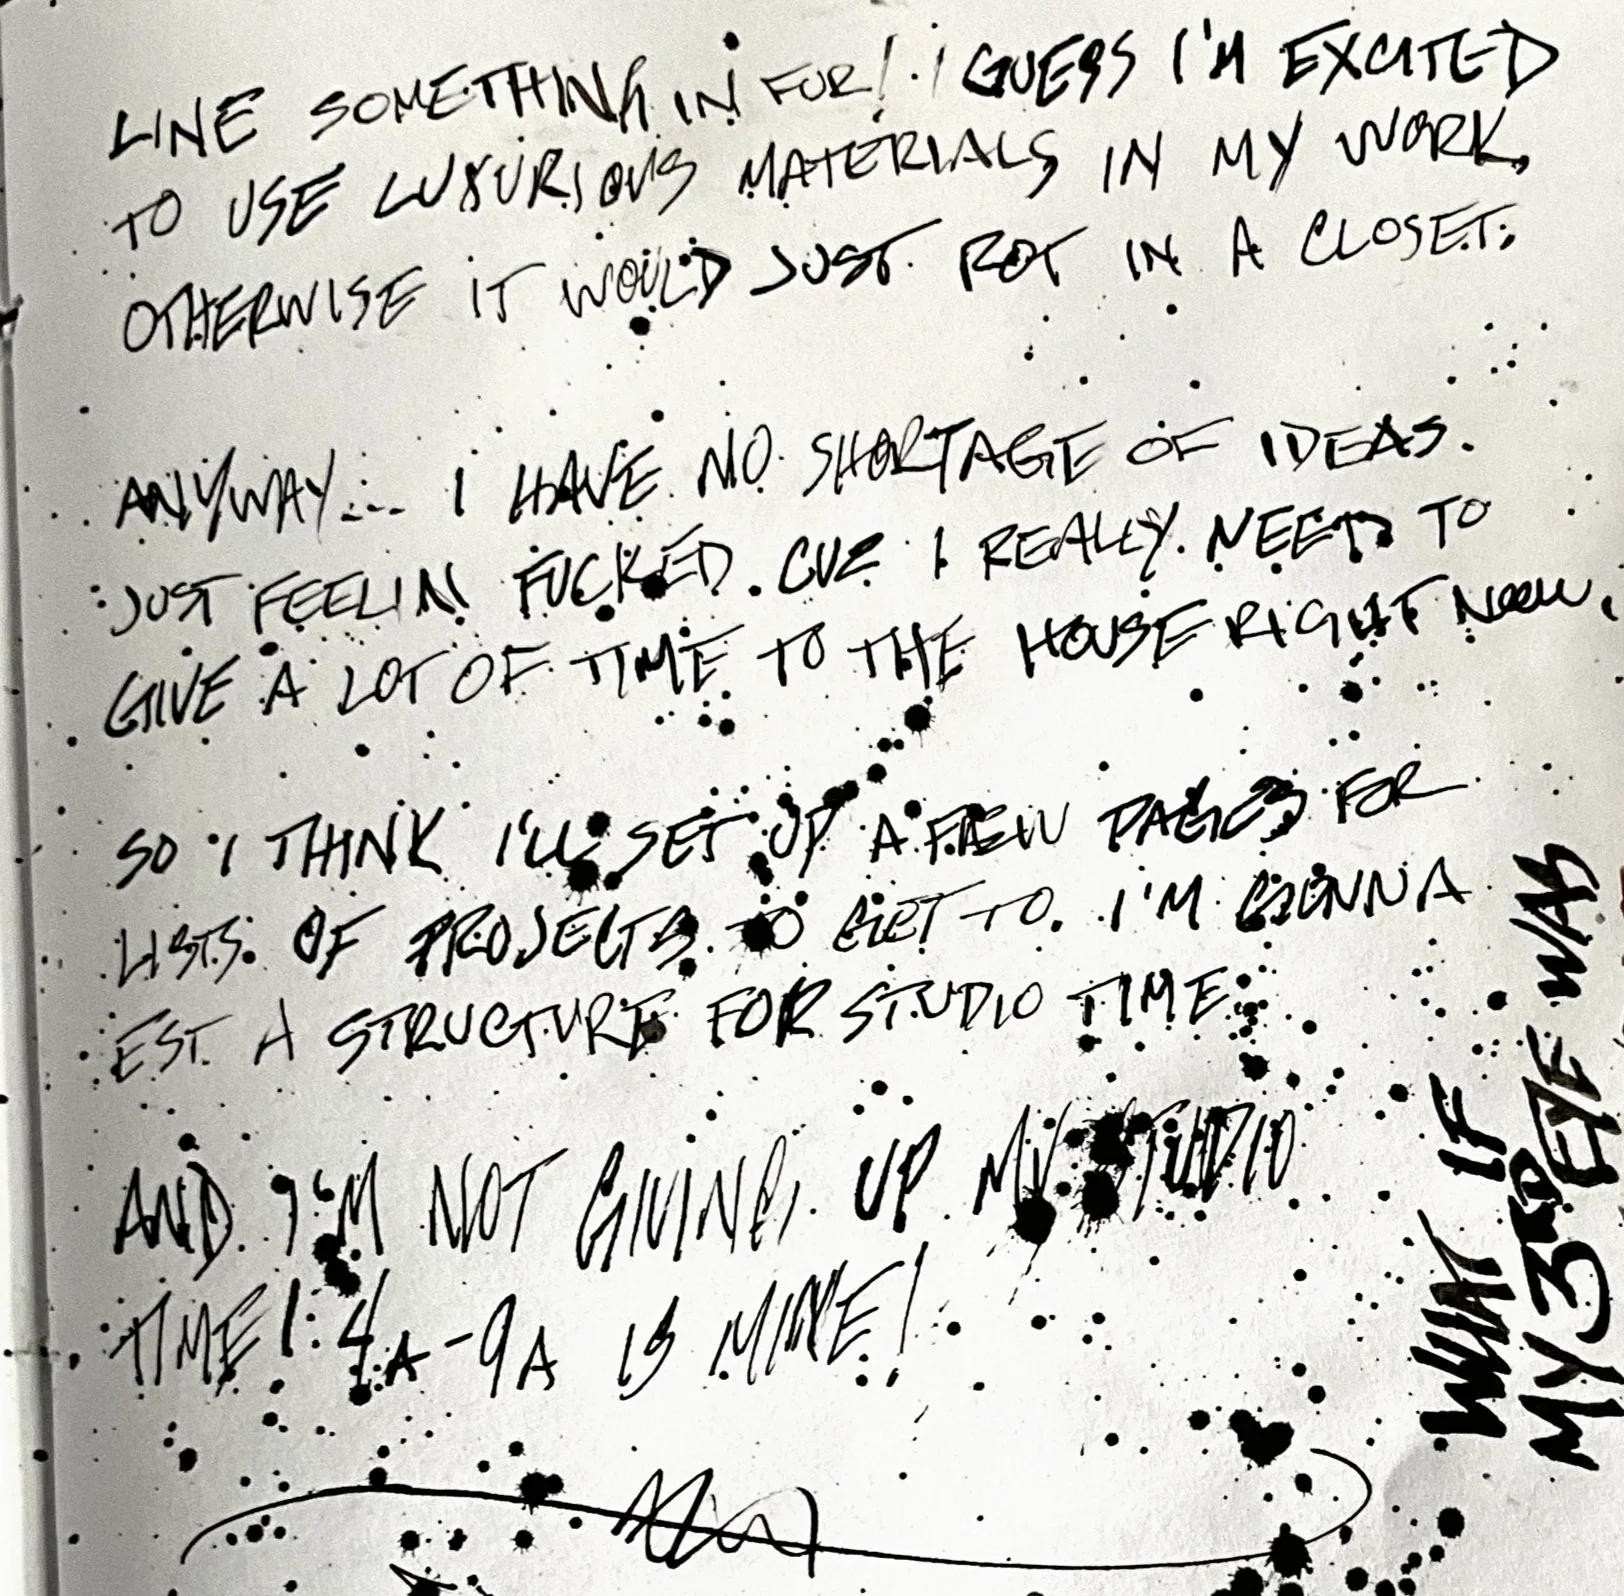 LINE SOMETHING IN FUR! I GUESS I'M EXCITED
TO USE LUXURIOUS MATERIALS IN MY WORK,
OTHERWISE IT WOULD JUST ROT IN A CLOSET.
ANYWAY... I HAVE NO SHORTAGE OF IDEAS.
JUST FEELIN FUCKED. CUZ I REALLY NEED TO
GIVE A LOT OF TIME TO THE HOUSE RIGHT NOW.
SO I THINK I'LL SET UP A FEW PAGES FOR
LISTS OF PROJECTS TO GET TO. I'M GONNA
EST. A STRUCTURE FOR STUDIO TIME.
AND I'M NOT GIVING UP MY STUDIO
TIME! 4A-9A IS MINE!
WHAT IF
MY 3RD EYE WAS